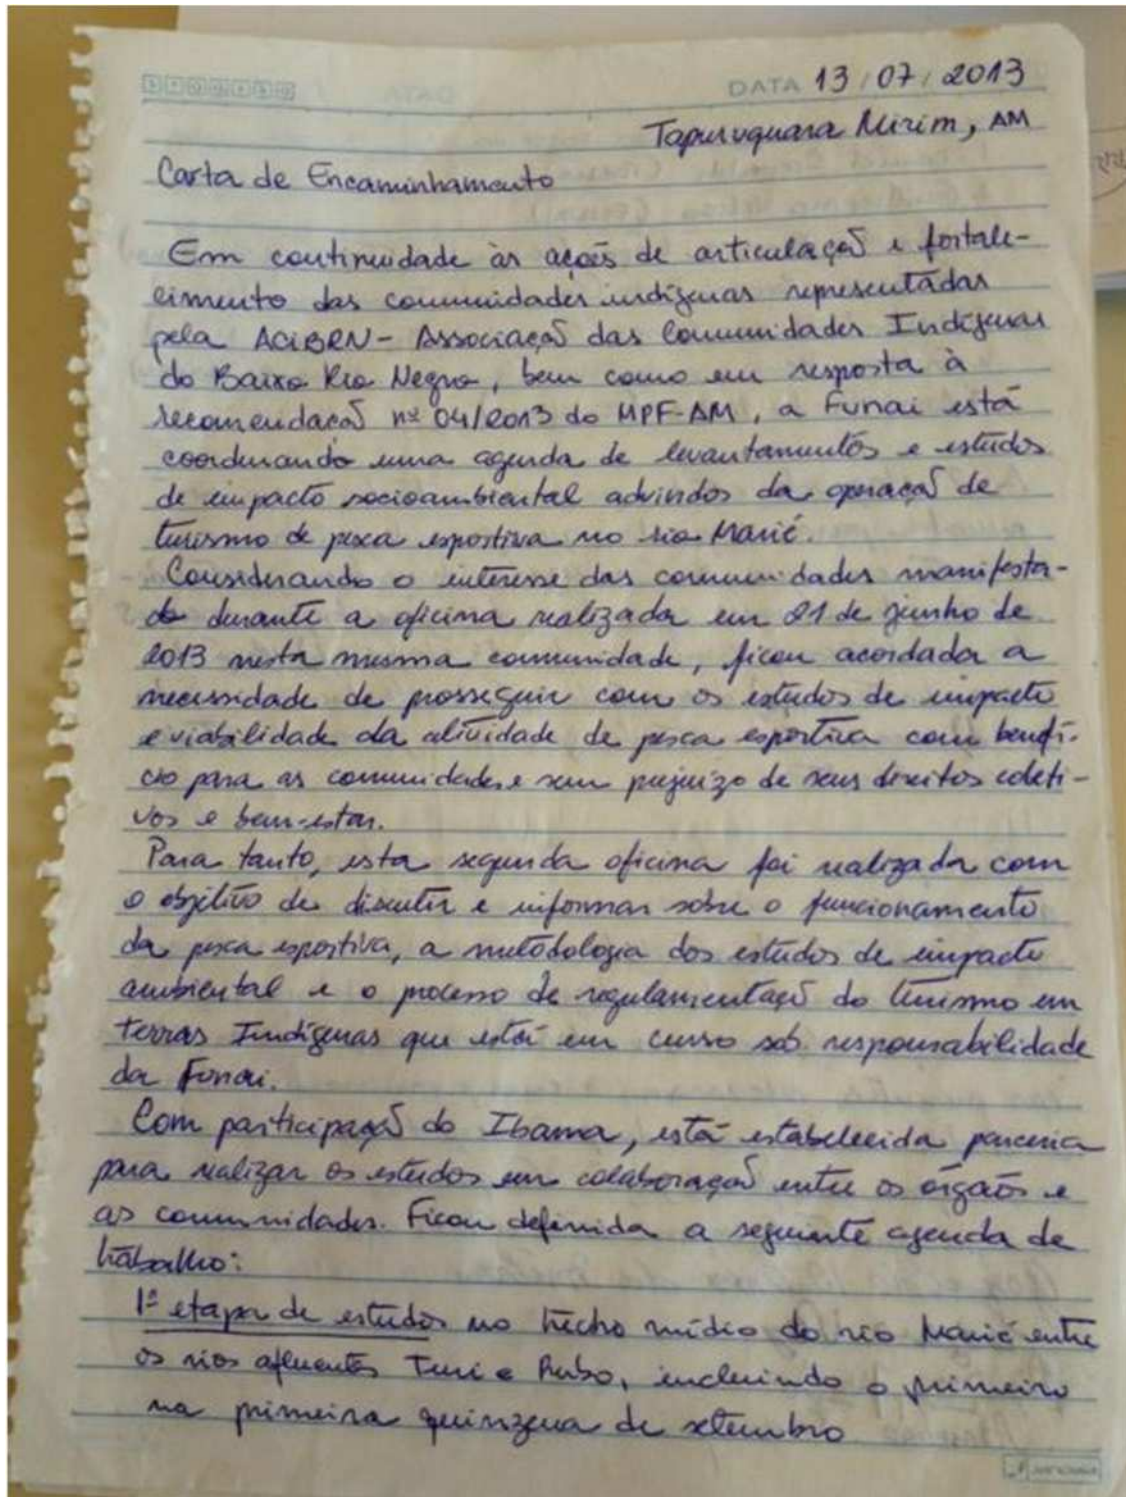 DATA 13/07/2013
Tapuruquara Mirim, AM
Carta de Encaminhamento
Em continuidade às ações de articulação e fortale-
cimento das comunidades indígenas representadas
pela ACIBRN - Associação das Comunidades Indígenas
do Baixo Rio Negro, bem como em resposta à
recomendação nº 04/2013 do MPF-AM, a Funai está
coordenando uma agenda de levantamentos e estudos
de impacto socioambiental advindos da operação de
turismo de pesca esportiva no rio Marié.
Considerando o interesse das comunidades manifesta-
do durante a oficina realizada em 21 de junho de
2013 nesta mesma comunidade, ficou acordada a
necessidade de prosseguir com os estudos de impacto
e viabilidade da atividade de pesca esportiva com benefí-
cio para as comunidades e sem prejuízo de seus direitos coleti-
vos e bem-estar.
Para tanto, esta segunda oficina foi realizada com
o objetivo de discutir e informar sobre o funcionamento
da pesca esportiva, a metodologia dos estudos de impacto
ambiental e o processo de regulamentação do turismo em
terras Indígenas que está em curso sob responsabilidade
da Funai.
Com participação do Ibama, está estabelecida parceria
para realizar os estudos em colaboração entre os órgãos e
as comunidades. Ficou definida a seguinte agenda de
trabalho:
1ª etapa de estudos no trecho médio do rio Marié entre
os rios afluentes Turi e, incluindo o primeiro
na primeira quinzena de setembro